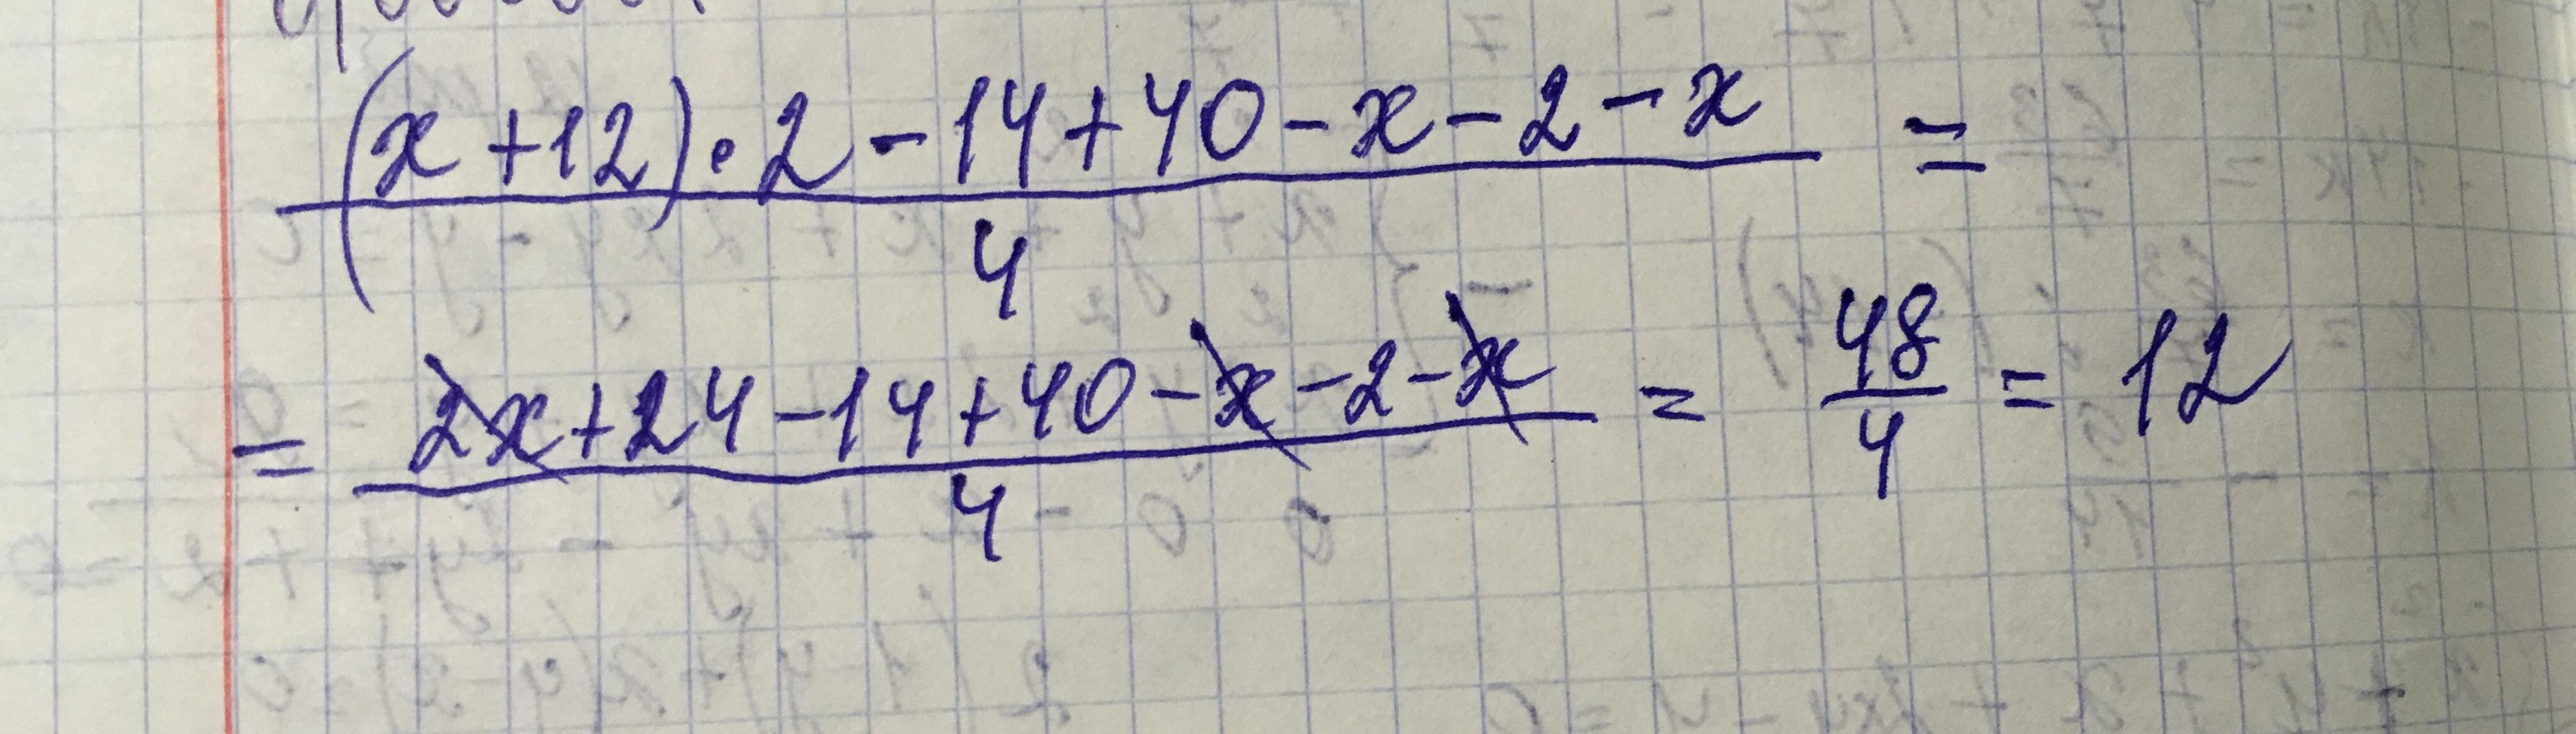 (x+12)·2-14+40-x-2-x =
4
= 2x+24-14+40-x-2-x = 48/4 = 12
4